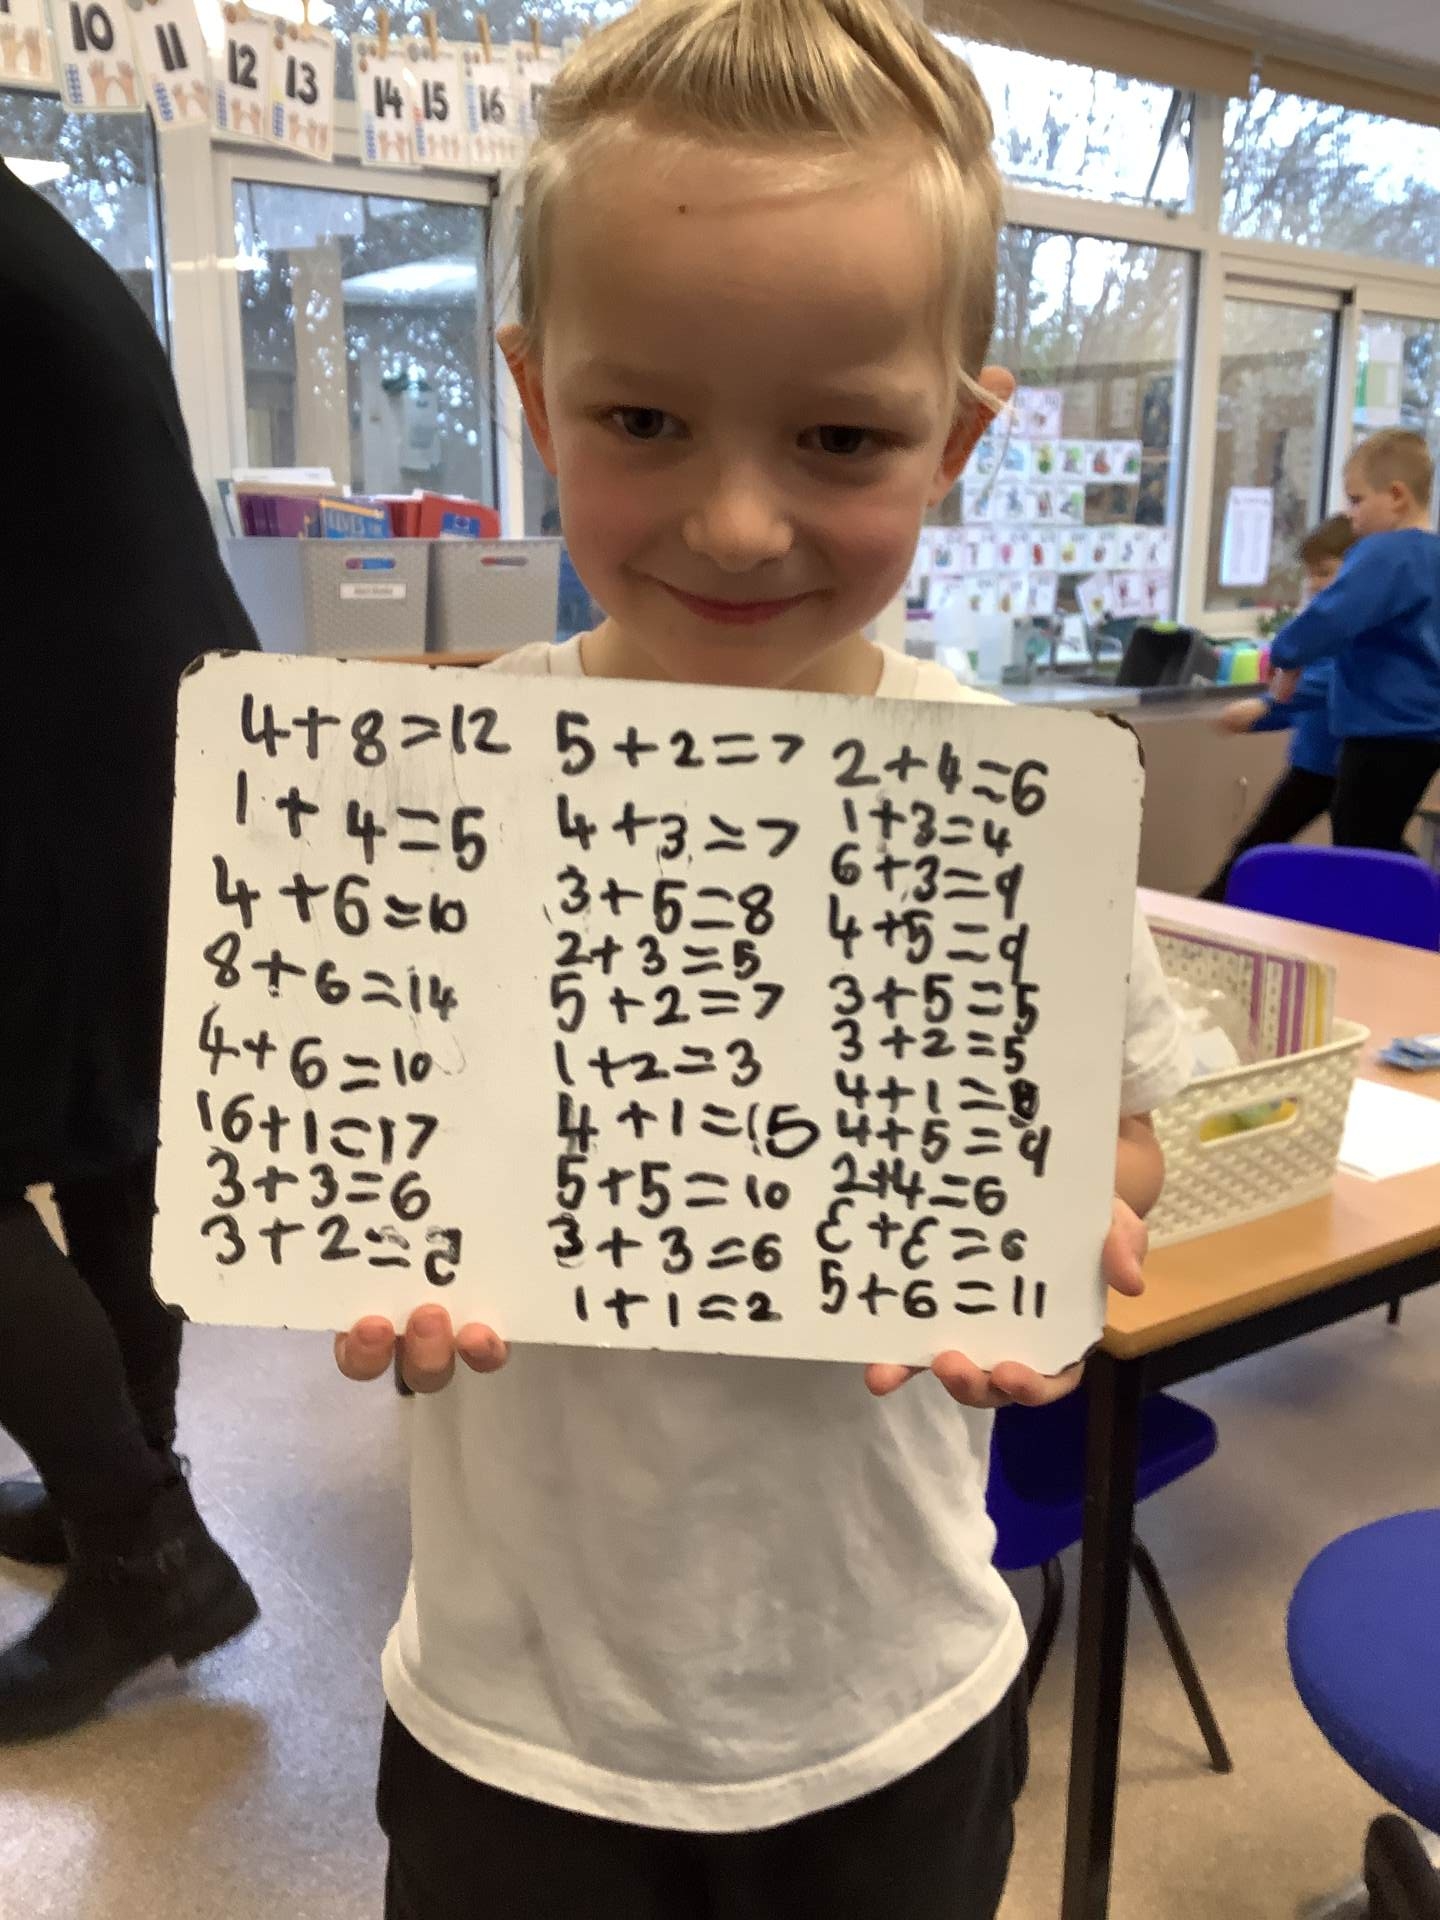 10 11 12 13 14 15 16
4+8=12
1+4=5
4+6=10
8+6=14
4+6=10
16+1=17
3+3=6
3+2=5
5+2=7
4+3=7
3+5=8
2+3=5
5+2=7
1+2=3
4+1=15
5+5=10
3+3=6
1+1=2
2+4=6
1+3=4
6+3=9
4+5=9
3+5=5
3+2=5
4+1=
4+5=9
2+4=6
3+3=6
5+6=11